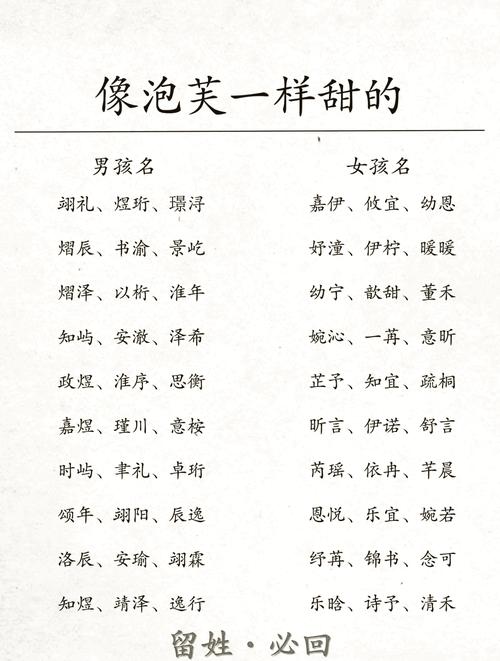 像泡芙一样甜的
男孩名
女孩名
翊礼、煜珩、璟浔
嘉伊、攸宜、幼恩
熠辰、书渝、景屹
妤潼、伊柠、暖暖
熠泽、以桁、淮年
幼宁、歆甜、董禾
知屿、安澈、泽希
婉沁、一苒、意昕
政煜、淮序、思衡
芷予、知宜、疏桐
嘉煜、瑾川、意桉
昕言、伊诺、舒言
时屿、聿礼、卓珩
芮瑶、依冉、芊晨
颂年、翊阳、辰逸
恩悦、乐宜、婉若
洛辰、安瑜、翊霖
纾苒、锦书、念可
知煜、靖泽、逸行
乐晗、诗予、清禾
留姓·必回